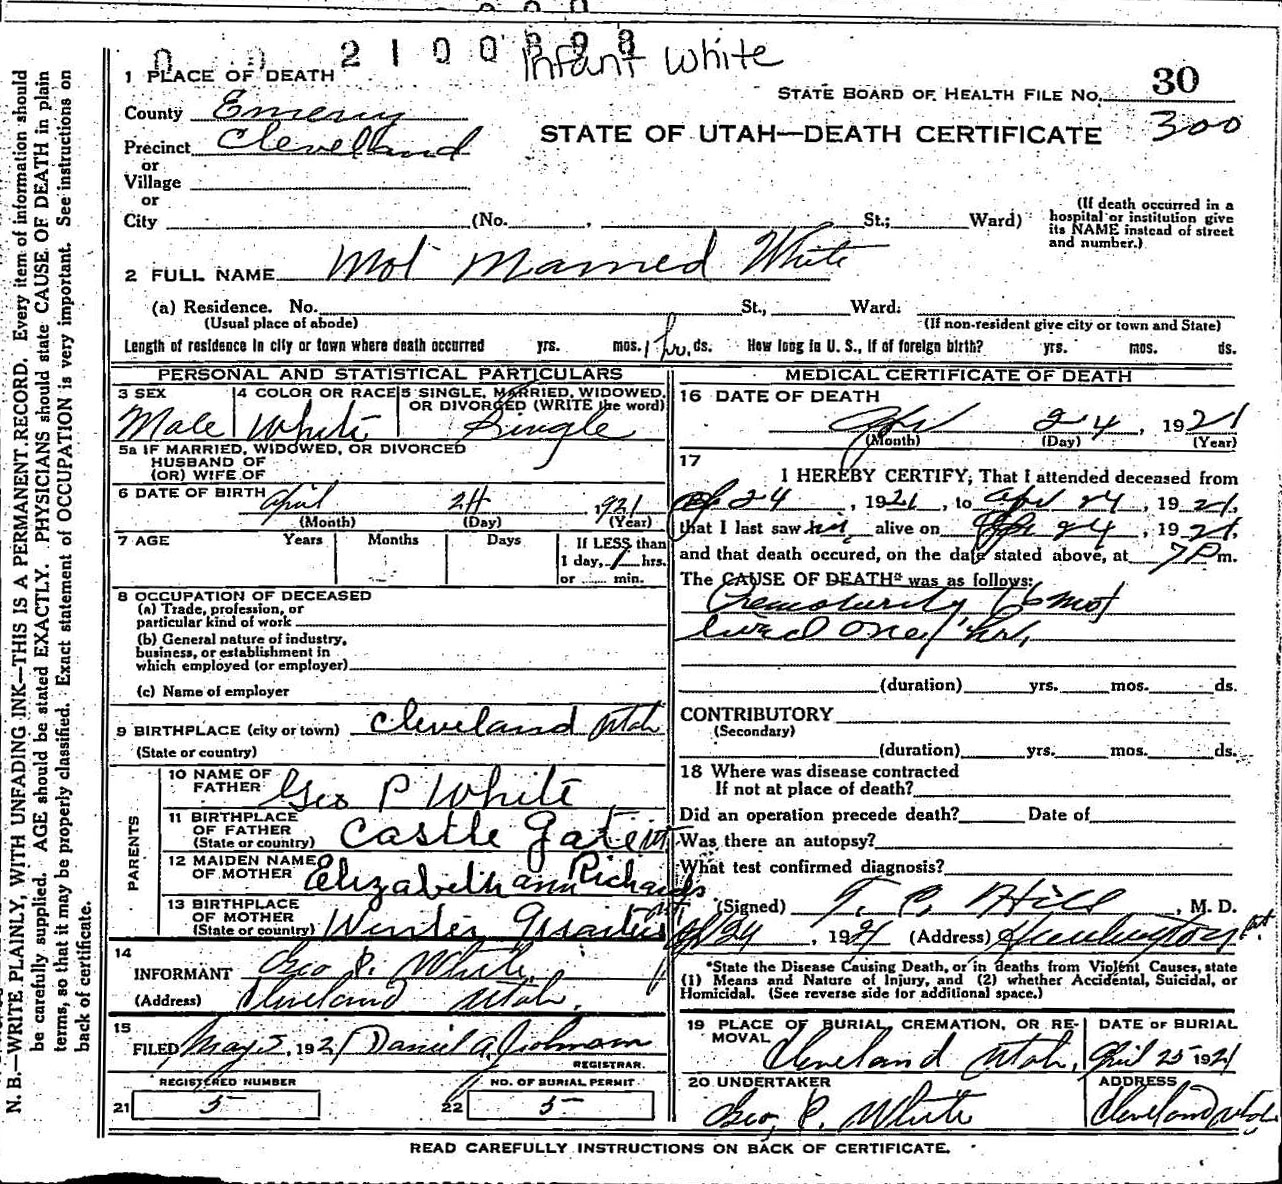 2100898
Infant White
1 PLACE OF DEATH
STATE BOARD OF HEALTH FILE NO. 30
County Emery
STATE OF UTAH—DEATH CERTIFICATE 300
Precinct Cleveland
or
Village
or
City (No. , St.; Ward)
(If death occurred in a hospital or institution give its NAME instead of street and number.)
2 FULL NAME Not Named White
(a) Residence. No. St., Ward.
(Usual place of abode) (If non-resident give city or town and State)
Length of residence in city or town where death occurred yrs. mos. 1 hr. ds. How long in U. S., if of foreign birth? yrs. mos. ds.
PERSONAL AND STATISTICAL PARTICULARS
3 SEX Male
4 COLOR OR RACE White
5 SINGLE, MARRIED, WIDOWED, OR DIVORCED (WRITE the word) Single
5a IF MARRIED, WIDOWED, OR DIVORCED
HUSBAND OF
(OR) WIFE OF
6 DATE OF BIRTH April 24 1921
(Month) (Day) (Year)
7 AGE Years Months Days If LESS than
1 day, 1 hrs.
or ...... min.
8 OCCUPATION OF DECEASED
(a) Trade, profession, or
particular kind of work
(b) General nature of industry,
business, or establishment in
which employed (or employer)
(c) Name of employer
9 BIRTHPLACE (city or town) Cleveland Utah
(State or country)
PARENTS
10 NAME OF FATHER Geo P White
11 BIRTHPLACE OF FATHER (State or country) Castle Gate Ut
12 MAIDEN NAME OF MOTHER Elizabeth ann Richards
13 BIRTHPLACE OF MOTHER (State or country) Winter Quarters Ut
14
INFORMANT Geo P. White
(Address) Cleveland Utah.
15
FILED May 5, 1921 Daniel A. Johnson
REGISTRAR.
REGISTERED NUMBER NO. OF BURIAL PERMIT
21 5 22 5
MEDICAL CERTIFICATE OF DEATH
16 DATE OF DEATH
Apr 24, 1921
(Month) (Day) (Year)
17
I HEREBY CERTIFY, That I attended deceased from
Ap 24, 1921, to Apr 24, 1921,
that I last saw him alive on Apr 24, 1921,
and that death occured, on the date stated above, at 7 P m.
The CAUSE OF DEATH* was as follows:
Prematurity (6 mo)
lived one 1 hr,
(duration) yrs. mos. ds.
CONTRIBUTORY
(Secondary)
(duration) yrs. mos. ds.
18 Where was disease contracted
If not at place of death?
Did an operation precede death? Date of
Was there an autopsy?
What test confirmed diagnosis?
(Signed) T. C. Hill, M. D.
Ap 24, 1921 (Address) Huntington Ut
*State the Disease Causing Death, or in deaths from Violent Causes, state
(1) Means and Nature of Injury, and (2) whether Accidental, Suicidal, or
Homicidal. (See reverse side for additional space.)
19 PLACE OF BURIAL, CREMATION, OR RE-MOVAL Cleveland Utah.
DATE OF BURIAL April 25 1921
20 UNDERTAKER Geo, P. White
ADDRESS Cleveland Utah
READ CAREFULLY INSTRUCTIONS ON BACK OF CERTIFICATE.
N. B.—WRITE PLAINLY, WITH UNFADING INK—THIS IS A PERMANENT RECORD. Every item of information should
be carefully supplied. AGE should be stated EXACTLY. PHYSICIANS should state CAUSE OF DEATH in plain
terms, so that it may be properly classified. Exact statement of OCCUPATION is very important. See instructions on
back of certificate.